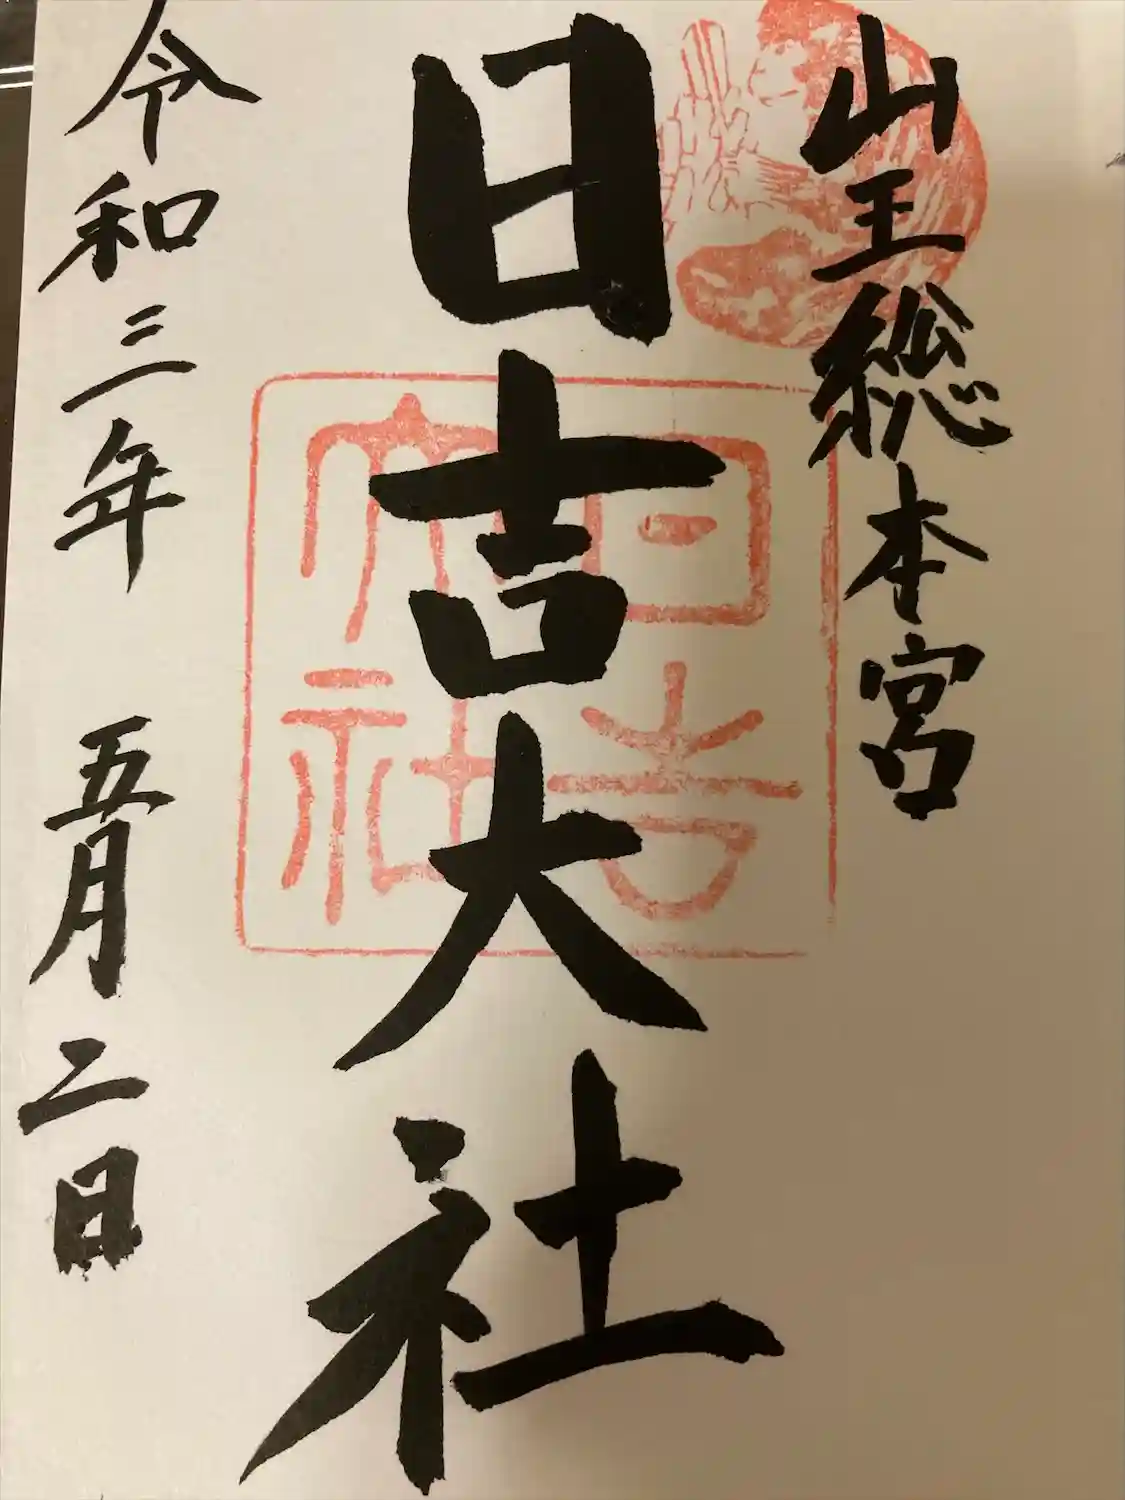 山王総本宮
日吉大社
日吉
大社
令和三年 五月二日